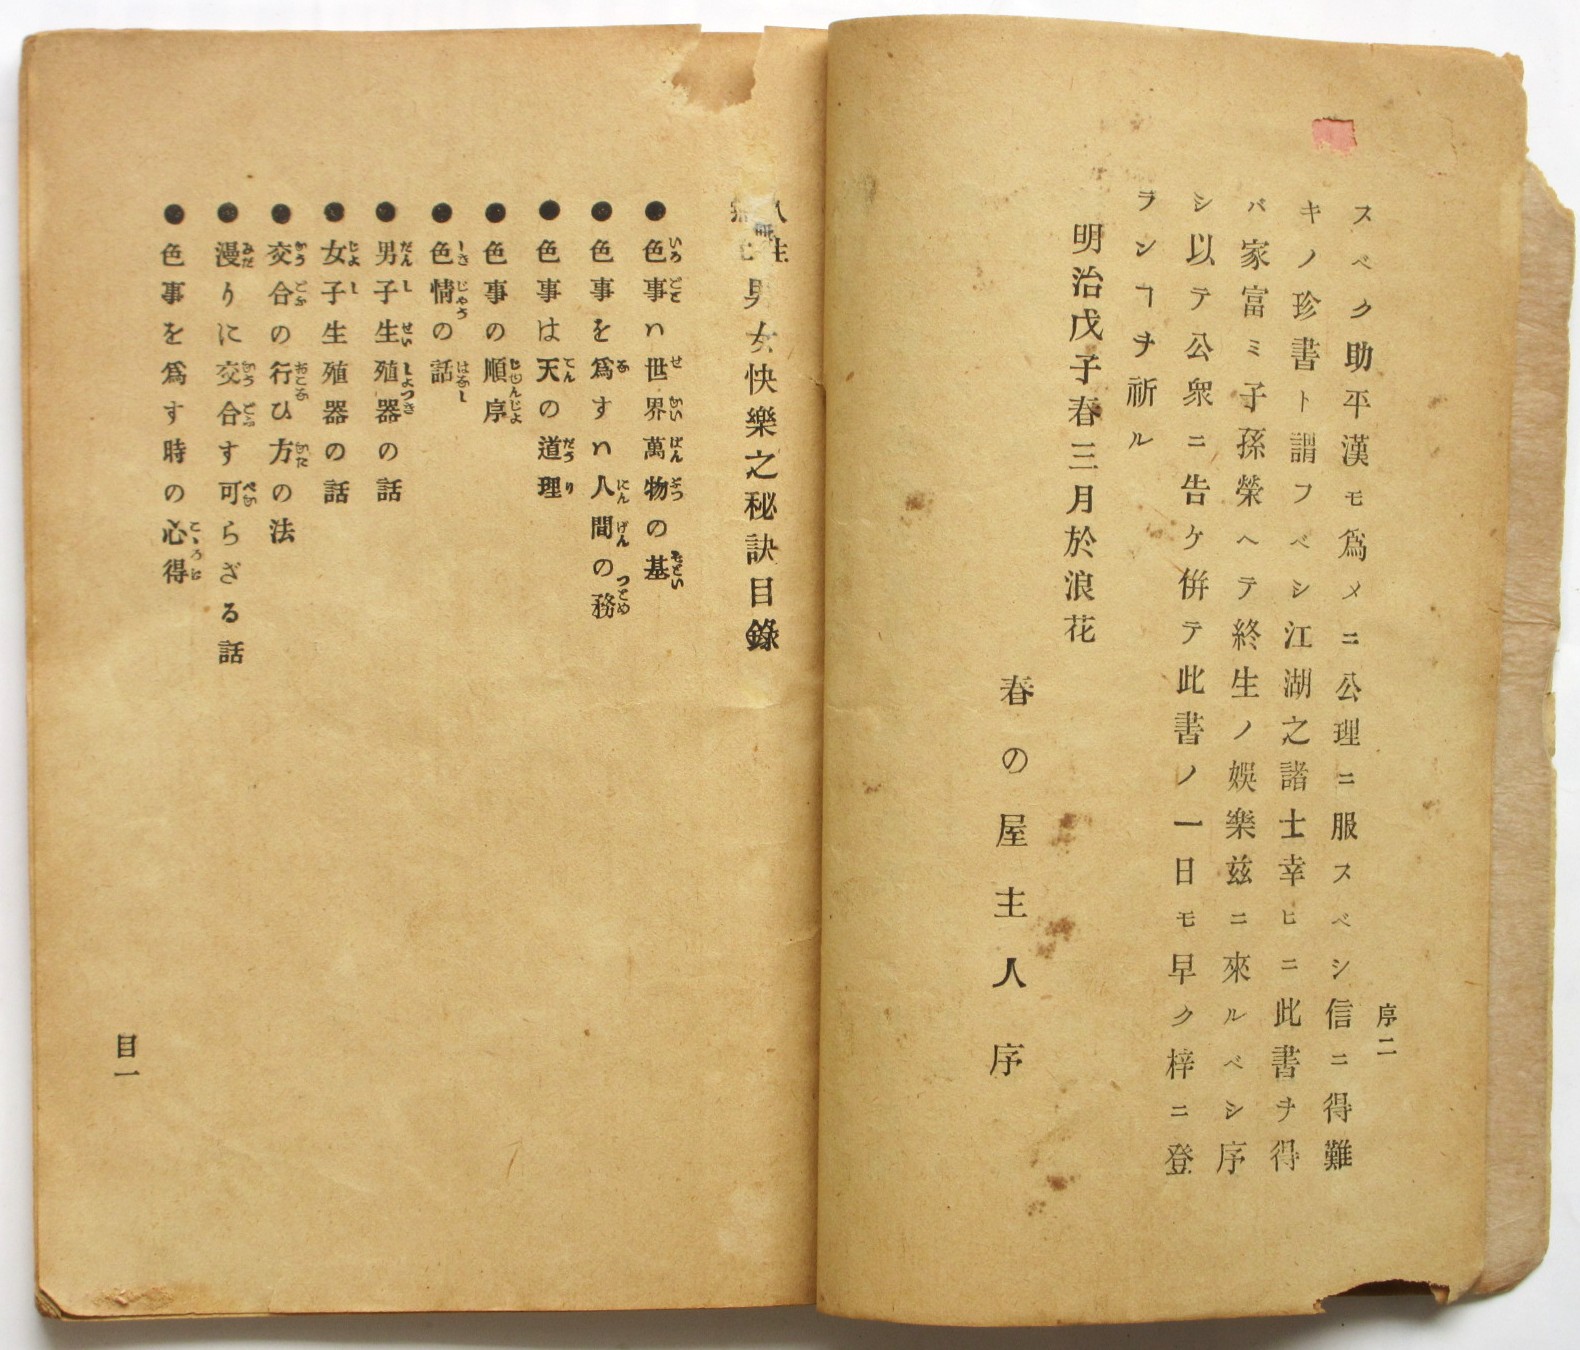 序二
スベク助平漢モ爲メニ公理ニ服スベシ信ニ得難
キノ珍書ト謂フベシ江湖之諸士幸ヒニ此書ヲ得
バ家富ミ子孫榮ヘテ終生ノ娯樂茲ニ來ルベシ序
シ以テ公衆ニ告ケ併テ此書ノ一日モ早ク梓ニ登
ランヿヲ祈ル
明治戊子春三月於浪花
春の屋主人序
男女快樂之秘訣目錄
●色事ハ世界萬物の基
●色事を爲すハ人間の務
●色事は天の道理
●色事の順序
●色情の話
●男子生殖器の話
●女子生殖器の話
●交合の行ひ方の法
●漫りに交合す可らざる話
●色事を爲す時の心得
目一